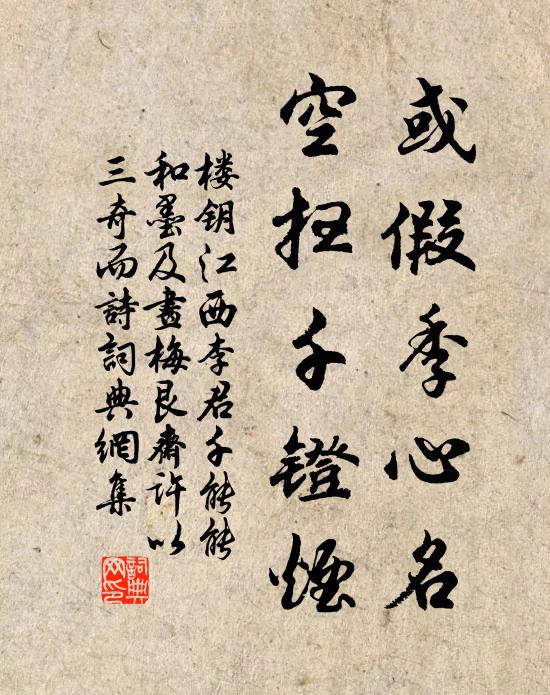 或假季心名
空扫千镫烟
楼钥江西李君千能能
和墨及畫梅艮齋許以
三奇而詩詞典網集
詞典
网印